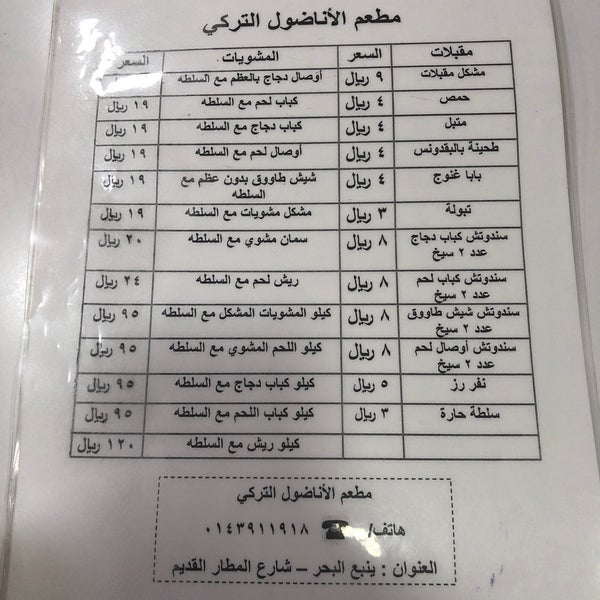 مطعم الأناضول التركي
مقبلات السعر المشويات السعر
مشكل مقبلات ٩ ريال أوصال دجاج بالعظم مع السلطه
حمص ٤ ريال كباب لحم مع السلطه ١٩ ريال
متبل ٤ ريال كباب دجاج مع السلطه ١٩ ريال
طحينة بالبقدونس ٤ ريال أوصال لحم مع السلطه ١٩ ريال
بابا غنوج ٤ ريال شيش طاووق بدون عظم مع السلطه ١٩ ريال
تبولة ٣ ريال مشكل مشويات مع السلطه ١٩ ريال
سندوتش كباب دجاج عدد ٢ سيخ ٨ ريال سمان مشوي مع السلطه ٢٠ ريال
سندوتش كباب لحم عدد ٢ سيخ ٨ ريال ريش لحم مع السلطه ٢٤ ريال
سندوتش شيش طاووق عدد ٢ سيخ ٨ ريال كيلو المشويات المشكل مع السلطه ٩٥ ريال
سندوتش أوصال لحم عدد ٢ سيخ ٨ ريال كيلو اللحم المشوي مع السلطه ٩٥ ريال
نفر رز ٥ ريال كيلو كباب دجاج مع السلطه ٩٥ ريال
سلطة حارة ٣ ريال كيلو كباب اللحم مع السلطه ٩٥ ريال
كيلو ريش مع السلطه ١٢٠ ريال
مطعم الأناضول التركي
هاتف/ ☎ ٠١٤٣٩١١٩١٨
العنوان : ينبع البحر – شارع المطار القديم